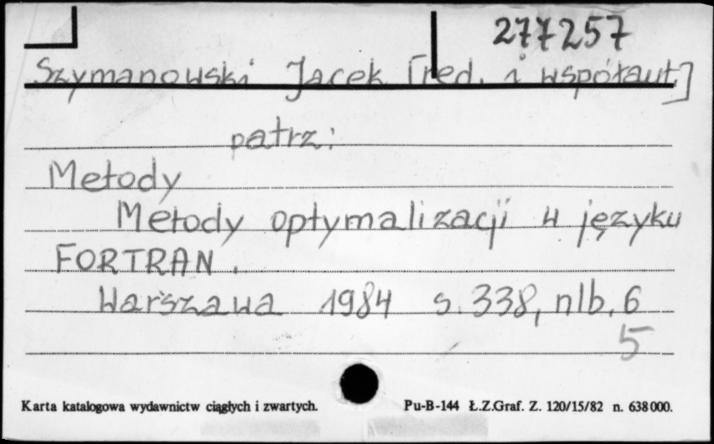 277257
Szymanowski Jacek [red. i współaut.]
patrz:
Metody
Metody optymalizacji w języku
FORTRAN.
Warszawa 1984 s. 338, nlb. 6
5
Karta katalogowa wydawnictw ciągłych i zwartych. Pu-B-144 Ł.Z.Graf. Z. 120/15/82 n. 638000.